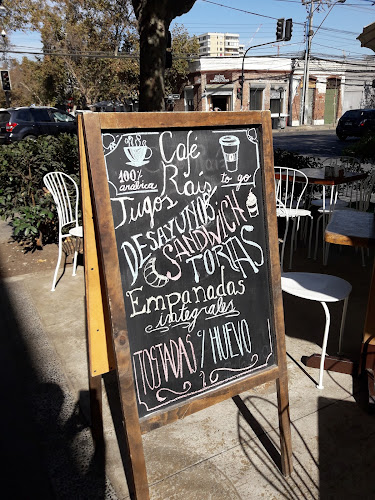 Café
Raíz
100%
arabica
to go
Jugos
DESAYUNOS
SANDWICH
TORTAS
Empanadas
integrales
TOSTADAS Y HUEVO